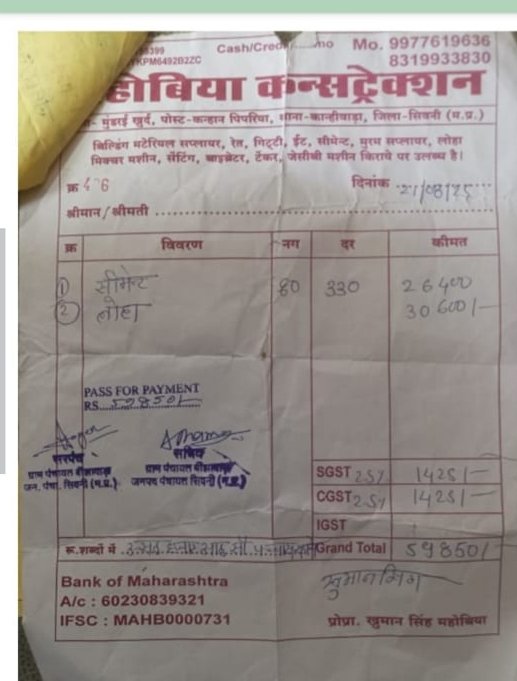 Cash/Cred mo Mo. 9977619636
KPM6492B2ZC 8319933830
होबिया कन्सट्रेक्शन
मुंडरई खुर्द, पोस्ट-कन्हान पिपरिया, थाना-कान्हीवाड़ा, जिला-सिवनी (म.प्र.)
बिल्डिंग मटेरियल सप्लायर, रेत, गिट्टी, ईट, सीमेन्ट, मुरम सप्लायर, लोहा
मिक्चर मशीन, सेंटिंग, वाइब्रेटर, टेंकर, जेसीबी मशीन किराये पर उलब्ध है।
क्र 476 दिनांक 21/08/25
श्रीमान/श्रीमती
क्र विवरण नग दर कीमत
1 सीमेन्ट 80 330 26400
2 लोहा 30600/-
PASS FOR PAYMENT
RS. 59850/-
सरपंच सचिव
ग्राम पंचायत ग्राम पंचायत
जन. पंचा. सिवनी (म.प्र.) जनपद पंचायत सिवनी (म.प्र.)
SGST 2.5% 1425/-
CGST 2.5% 1425/-
IGST
रू.शब्दों में Grand Total 59850/-
Bank of Maharashtra
A/c : 60230839321
IFSC : MAHB0000731
प्रोप्रा. खुमान सिंह महोबिया